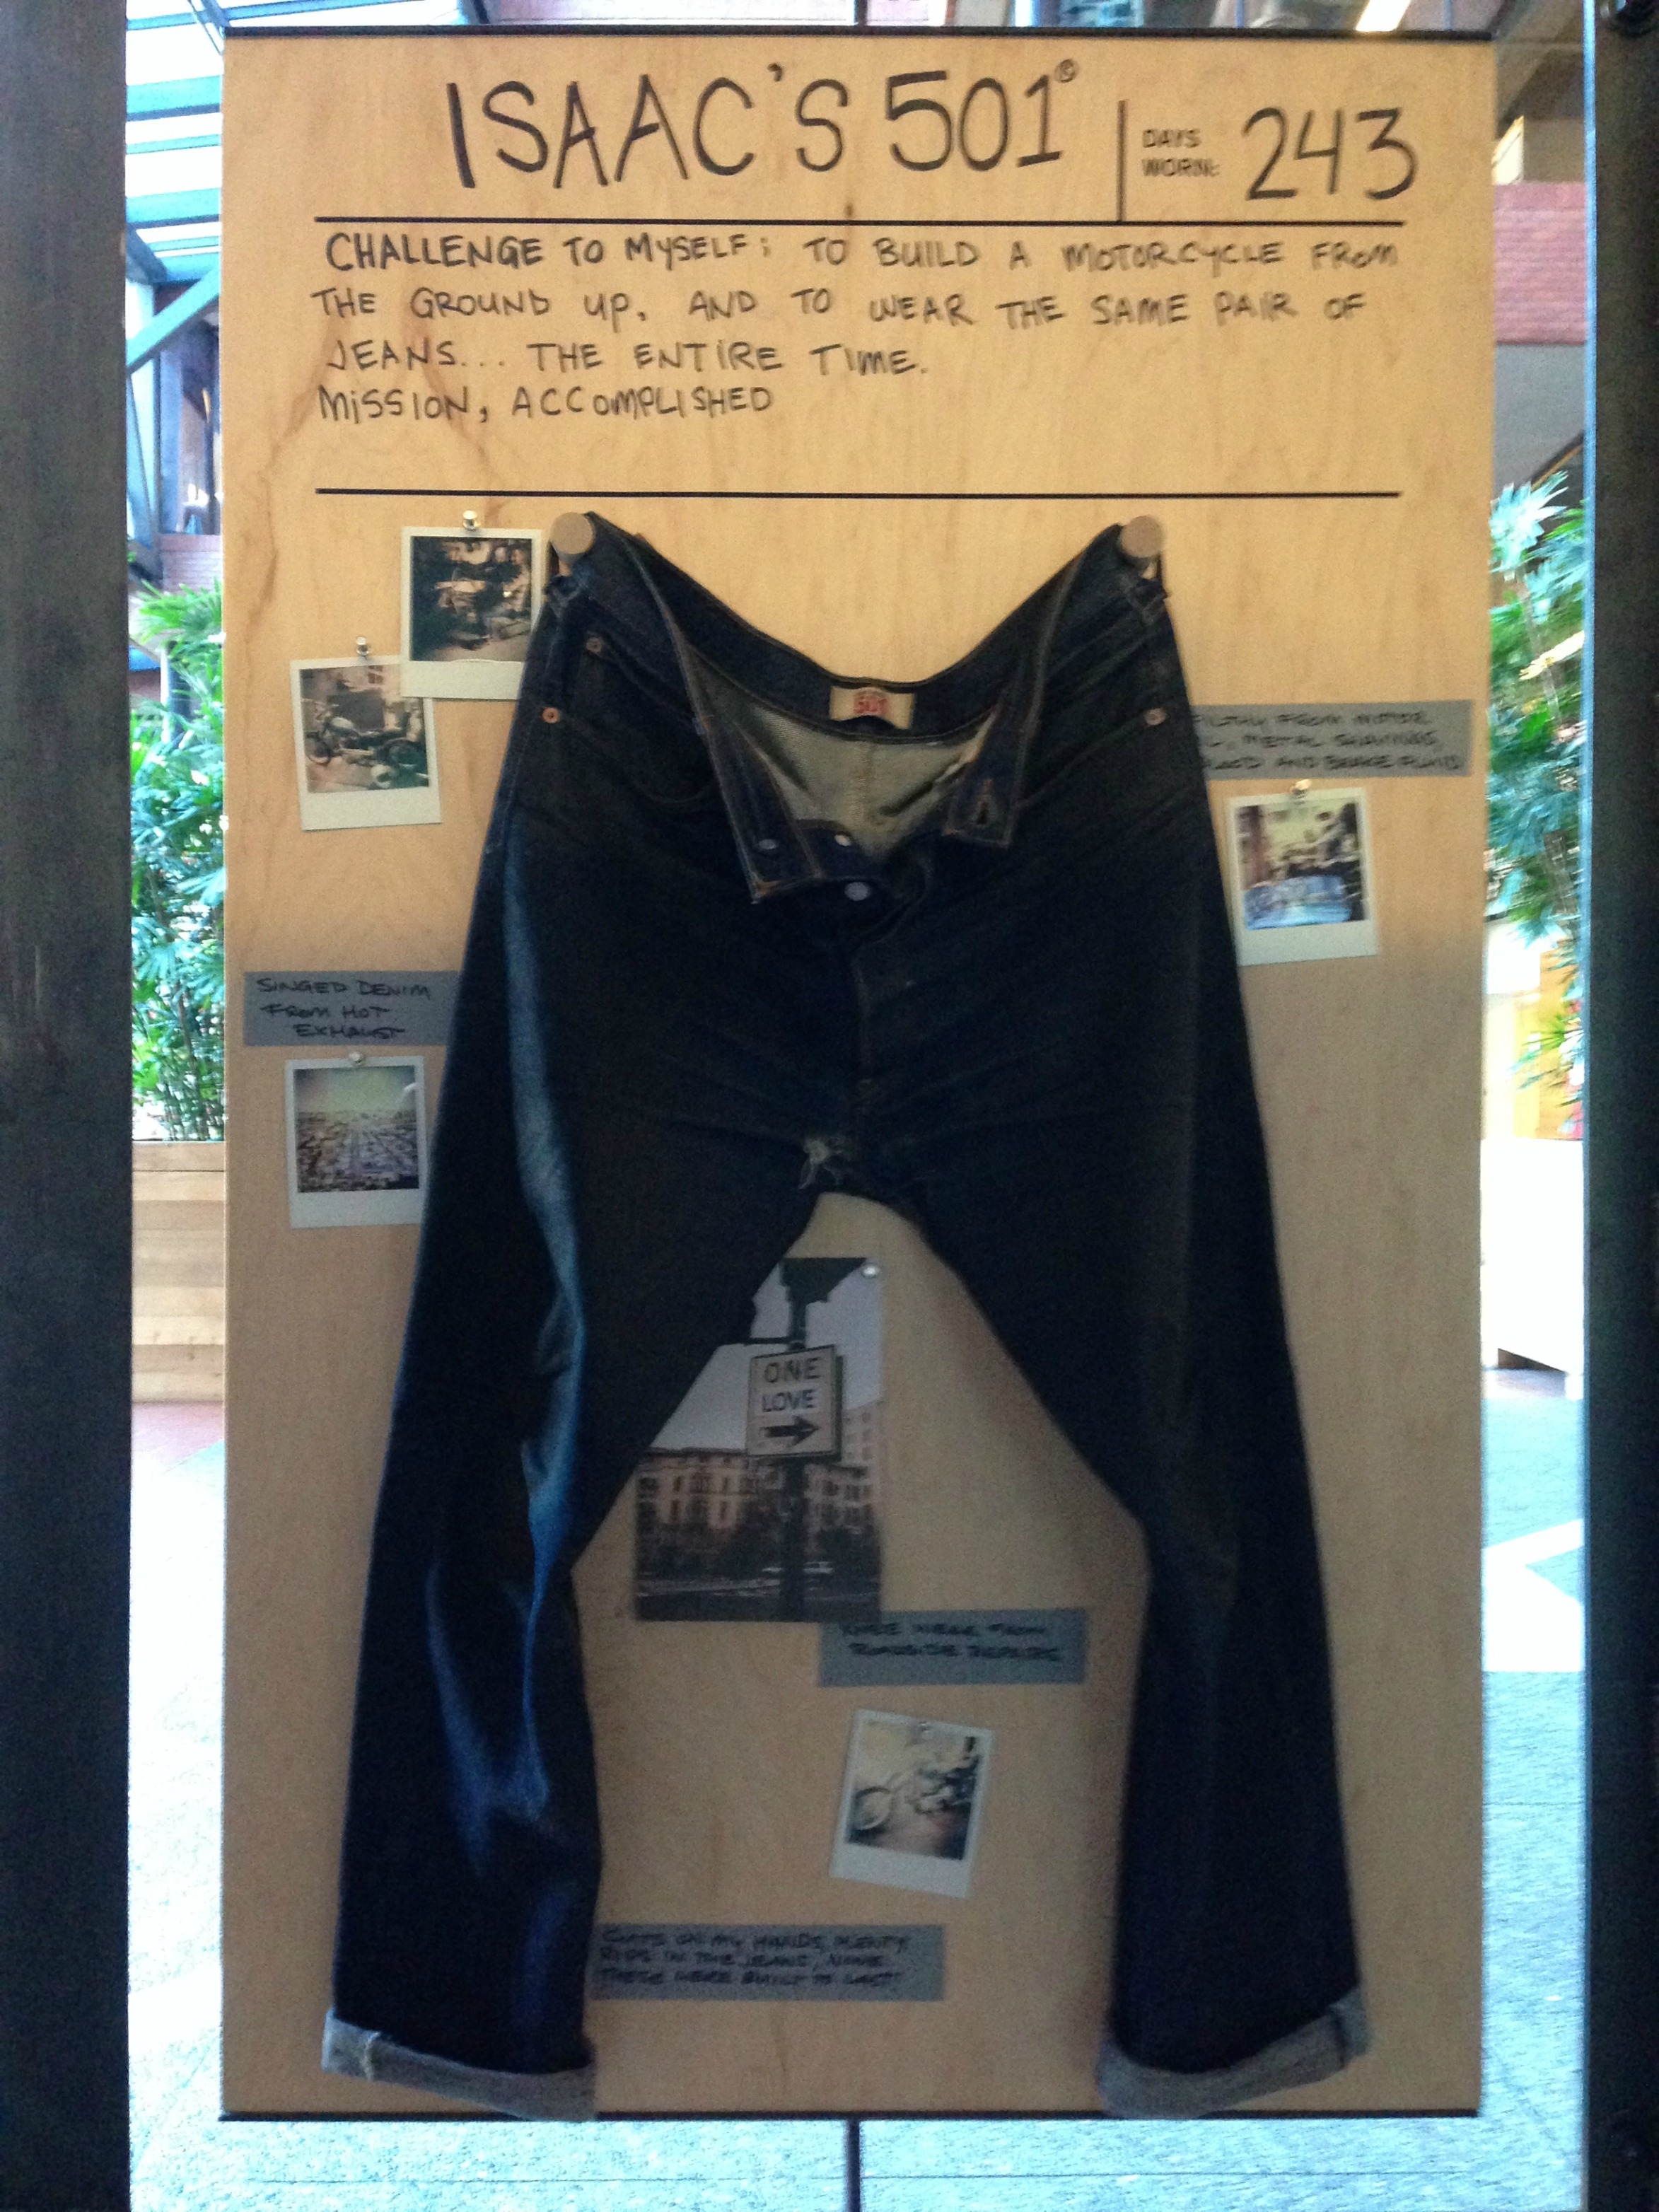 ISAAC'S 501®
DAYS
WORN:
243
CHALLENGE TO MYSELF: TO BUILD A MOTORCYCLE FROM
THE GROUND UP, AND TO WEAR THE SAME PAIR OF
JEANS... THE ENTIRE TIME.
MISSION, ACCOMPLISHED
501
FILTHY FROM MOTOR
OIL, METAL SHAVINGS,
BLOOD AND BRAKE FLUID
SINGED DENIM
FROM HOT
EXHAUST
ONE
LOVE
KNEE WEAR FROM
ROADSIDE REPAIRS
CUTS ON MY HANDS, PLENTY
RIPS IN THE JEANS, NONE
THESE WERE BUILT TO LAST!